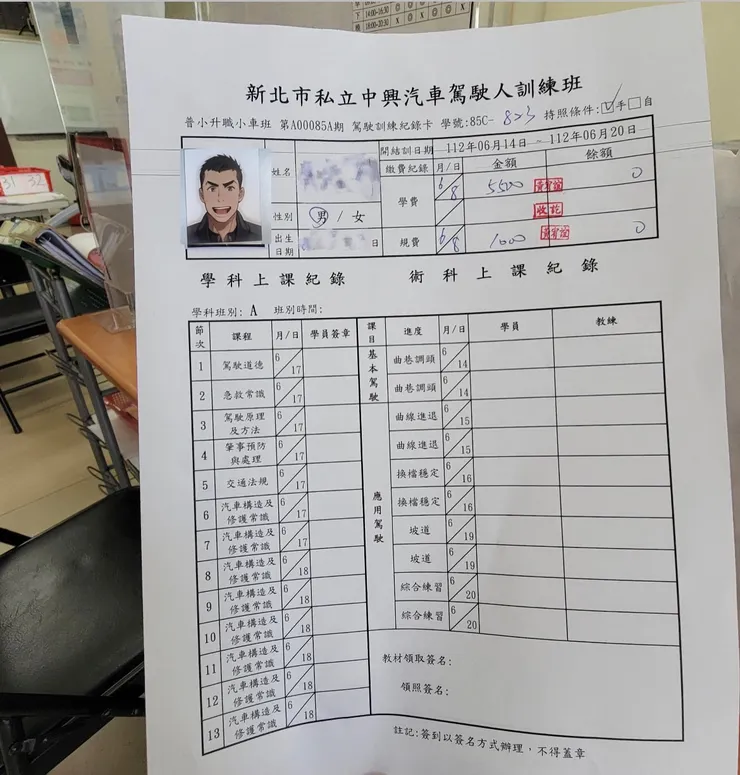 下 14:00-16:30 ◎ ◎ X ◎ ◎ ◎
晚 18:00-20:30 X ◎ X
31 32
新北市私立中興汽車駕駛人訓練班
普小升職小車班 第A00085A期 駕駛訓練紀錄卡 學號:85C- 823 持照條件:☑手□自
開結訓日期 112年06月14日 - 112年06月20日
姓名 繳費紀錄 月/日 金額 餘額
學費 6/8 5500 0
性別 男/女
收訖
出生日期 日 規費 6/8 1000 0
學科上課紀錄 術科上課紀錄
學科班別: A 班別時間:
節次 課程 月/日 學員簽章
1 駕駛道德 6/17
2 急救常識 6/17
3 駕駛原理及方法 6/17
4 肇事預防與處理 6/17
5 交通法規 6/17
6 汽車構造及修護常識 6/17
7 汽車構造及修護常識 6/17
8 汽車構造及修護常識 6/18
9 汽車構造及修護常識 6/18
10 汽車構造及修護常識 6/18
11 汽車構造及修護常識 6/18
12 汽車構造及修護常識 6/18
13 汽車構造及修護常識 6/18
課目 進度 月/日 學員 教練
基本駕駛
曲巷調頭 6/14
曲巷調頭 6/14
應用駕駛
曲線進退 6/15
曲線進退 6/15
換檔穩定 6/16
換檔穩定 6/16
坡道 6/19
坡道 6/19
綜合練習 6/20
綜合練習 6/20
教材領取簽名:
領照簽名:
註記:簽到以簽名方式辦理,不得蓋章